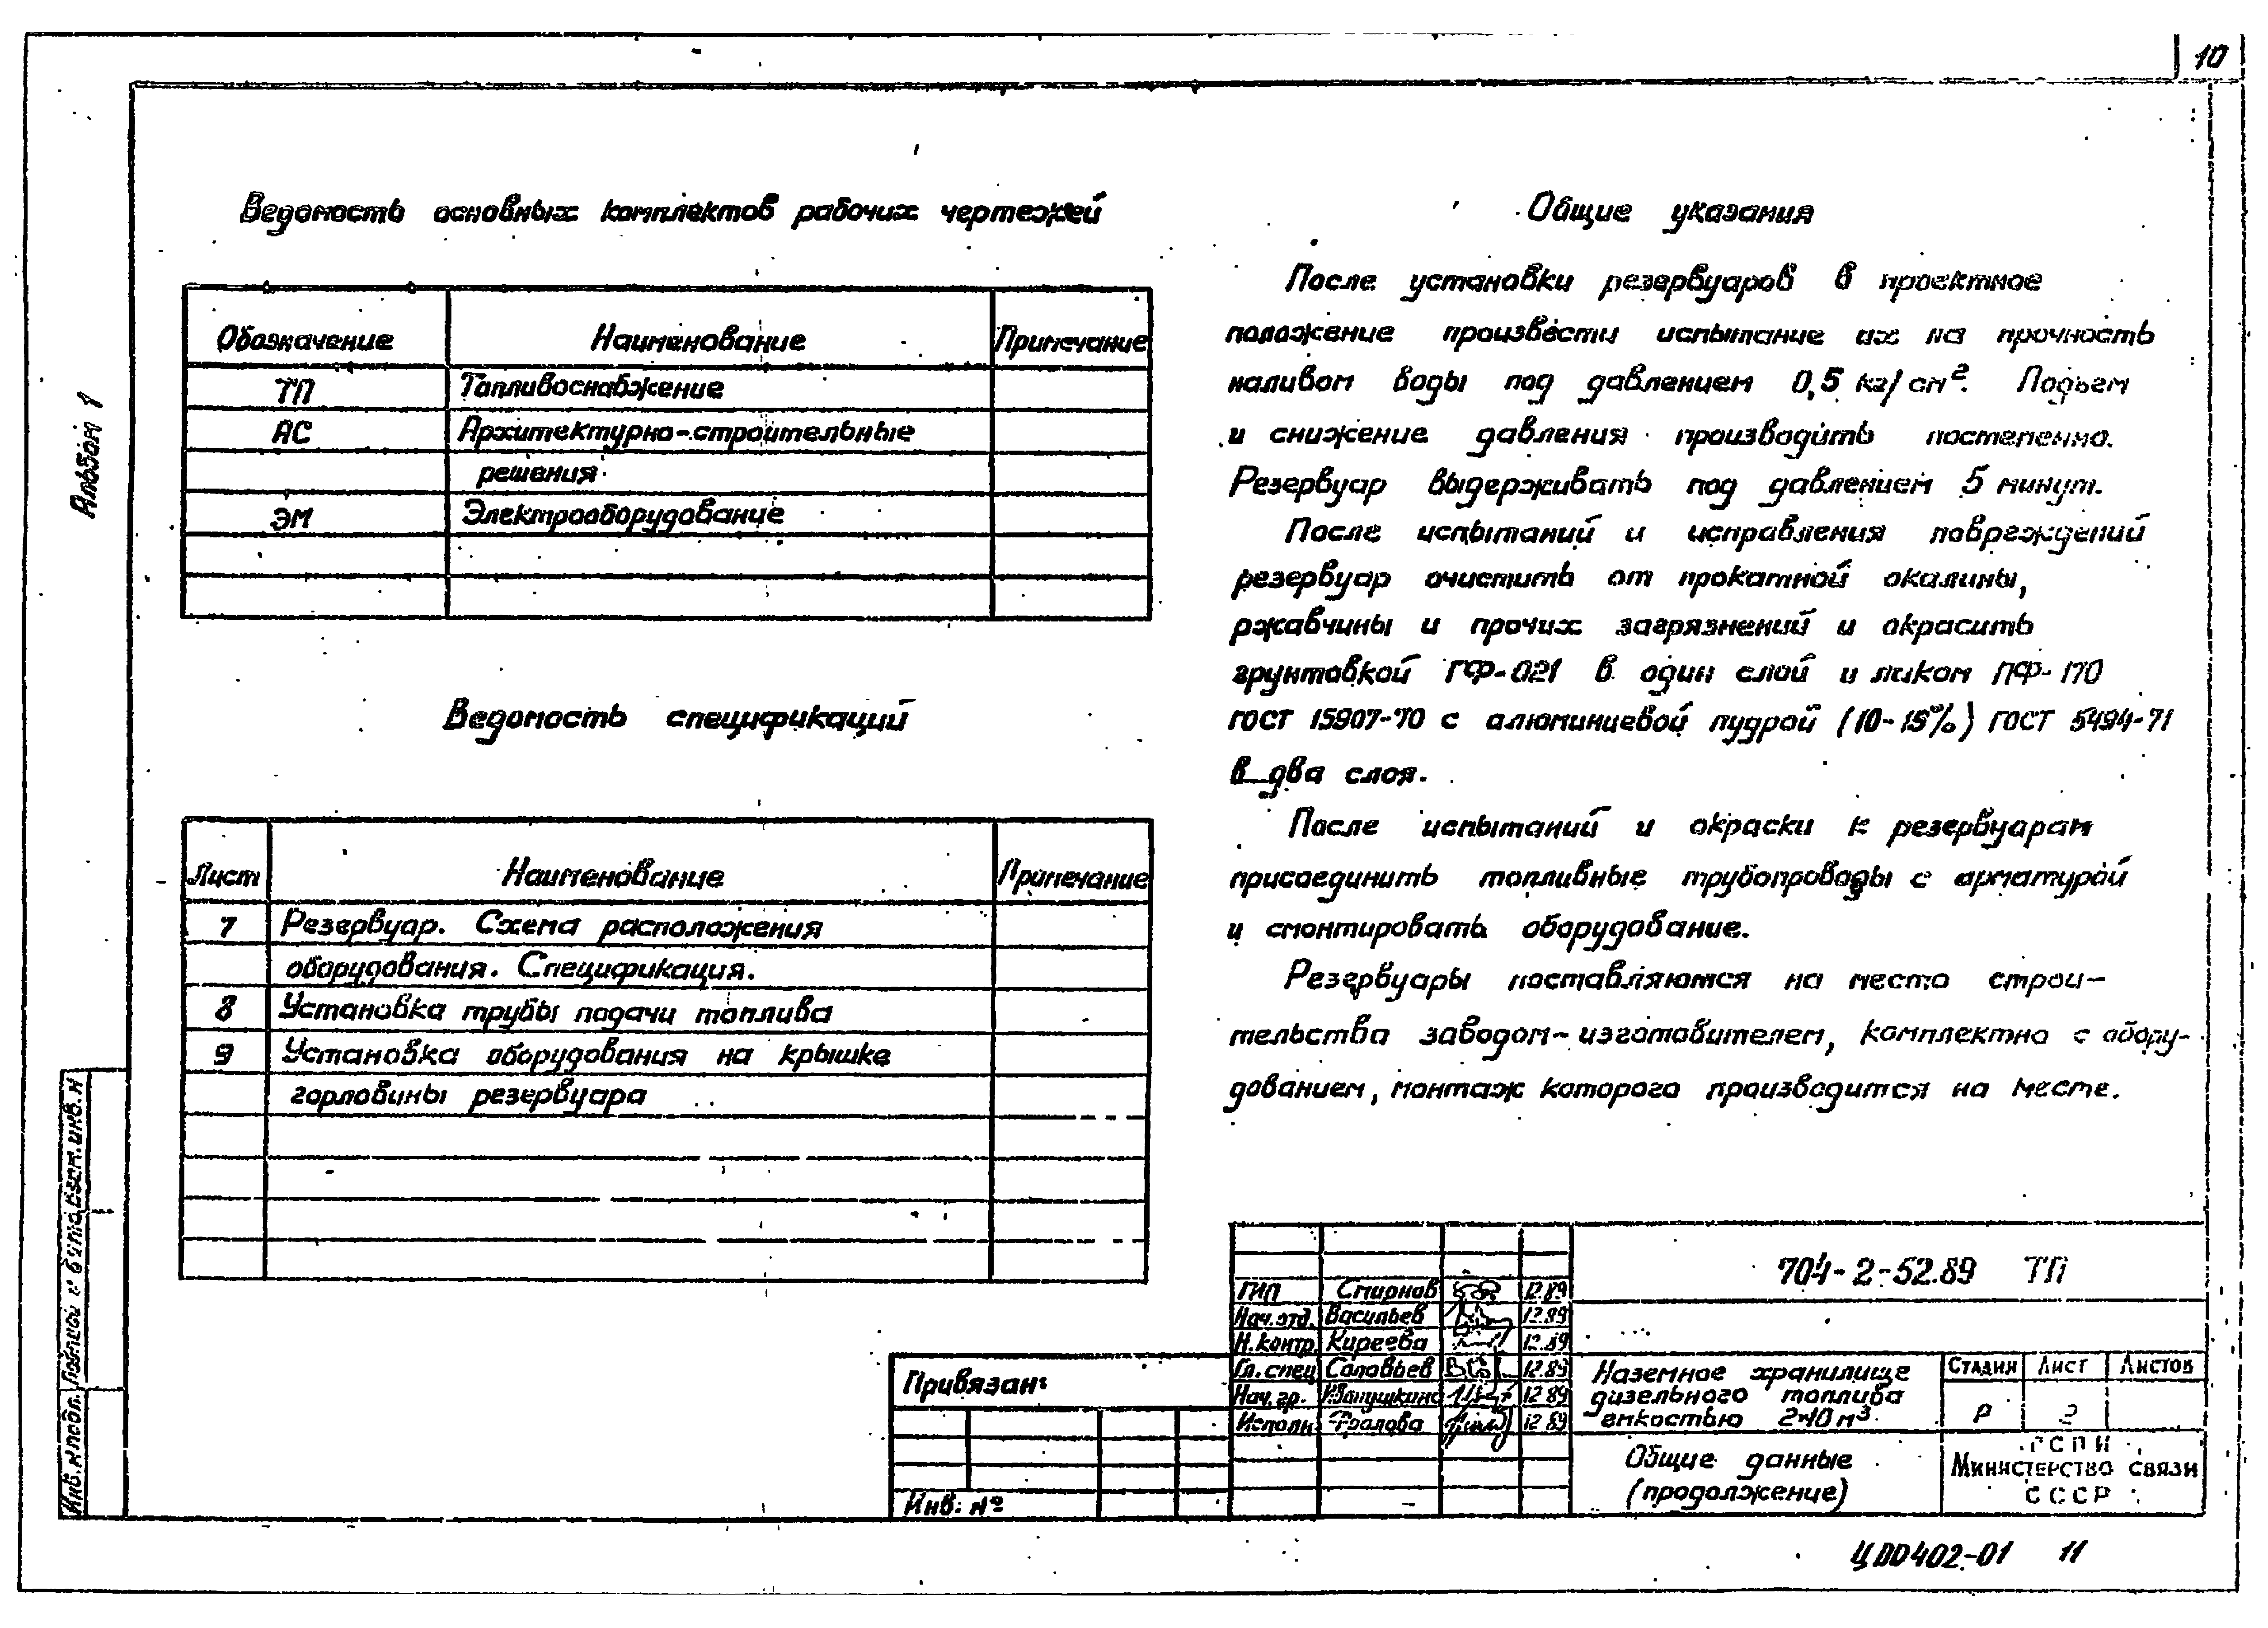 10
Альбом 1
Ведомость основных комплектов рабочих чертежей
Обозначение Наименование Примечание
ТП Топливоснабжение
АС Архитектурно-строительные
решения
ЭМ Электрооборудование
Ведомость спецификаций
Лист Наименование Примечание
7 Резервуар. Схема расположения
оборудования. Спецификация.
8 Установка трубы подачи топлива
9 Установка оборудования на крышке
горловины резервуара
Общие указания
После установки резервуаров в проектное
положение произвести испытание их на прочность
наливом воды под давлением 0,5 кг/см². Подъем
и снижение давления производить постепенно.
Резервуар выдерживать под давлением 5 минут.
После испытаний и исправления повреждений
резервуар очистить от прокатной окалины,
ржавчины и прочих загрязнений и окрасить
грунтовкой ГФ-021 в один слой и лаком ПФ-170
ГОСТ 15907-70 с алюминиевой пудрой (10-15%) ГОСТ 5494-71
в два слоя.
После испытаний и окраски к резервуарам
присоединить топливные трубопроводы с арматурой
и смонтировать оборудование.
Резервуары поставляются на место строи-
тельства заводом-изготовителем, комплектно с обору-
дованием, монтаж которого производится на месте.
704-2-52.89 ТП
ГИП Смирнов 12.89
Нач.отд. Васильев 12.89
Н.контр. Киреева 12.89
Гл.спец Соловьев 12.89
Нач.гр. Иванушкина 12.89
Исполн. Фролова 12.89
Наземное хранилище
дизельного топлива
емкостью 2×10 м³
Стадия Лист Листов
Р 2
Общие данные
(продолжение)
ГСПИ
Министерство связи
СССР
Привязан:
Инв. №
Инв. № подл. Подпись и дата Взам. инв. №
ЦОО402-01 11